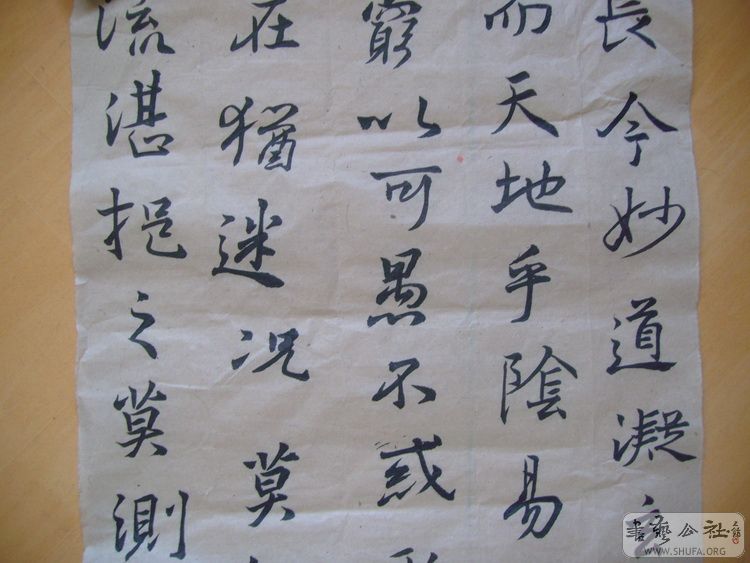 長今妙道凝
而天地乎陰易
窮以可愚不惑
在猶迷況莫
流湛挹之莫測
書藝公社
WWW.SHUFA.ORG